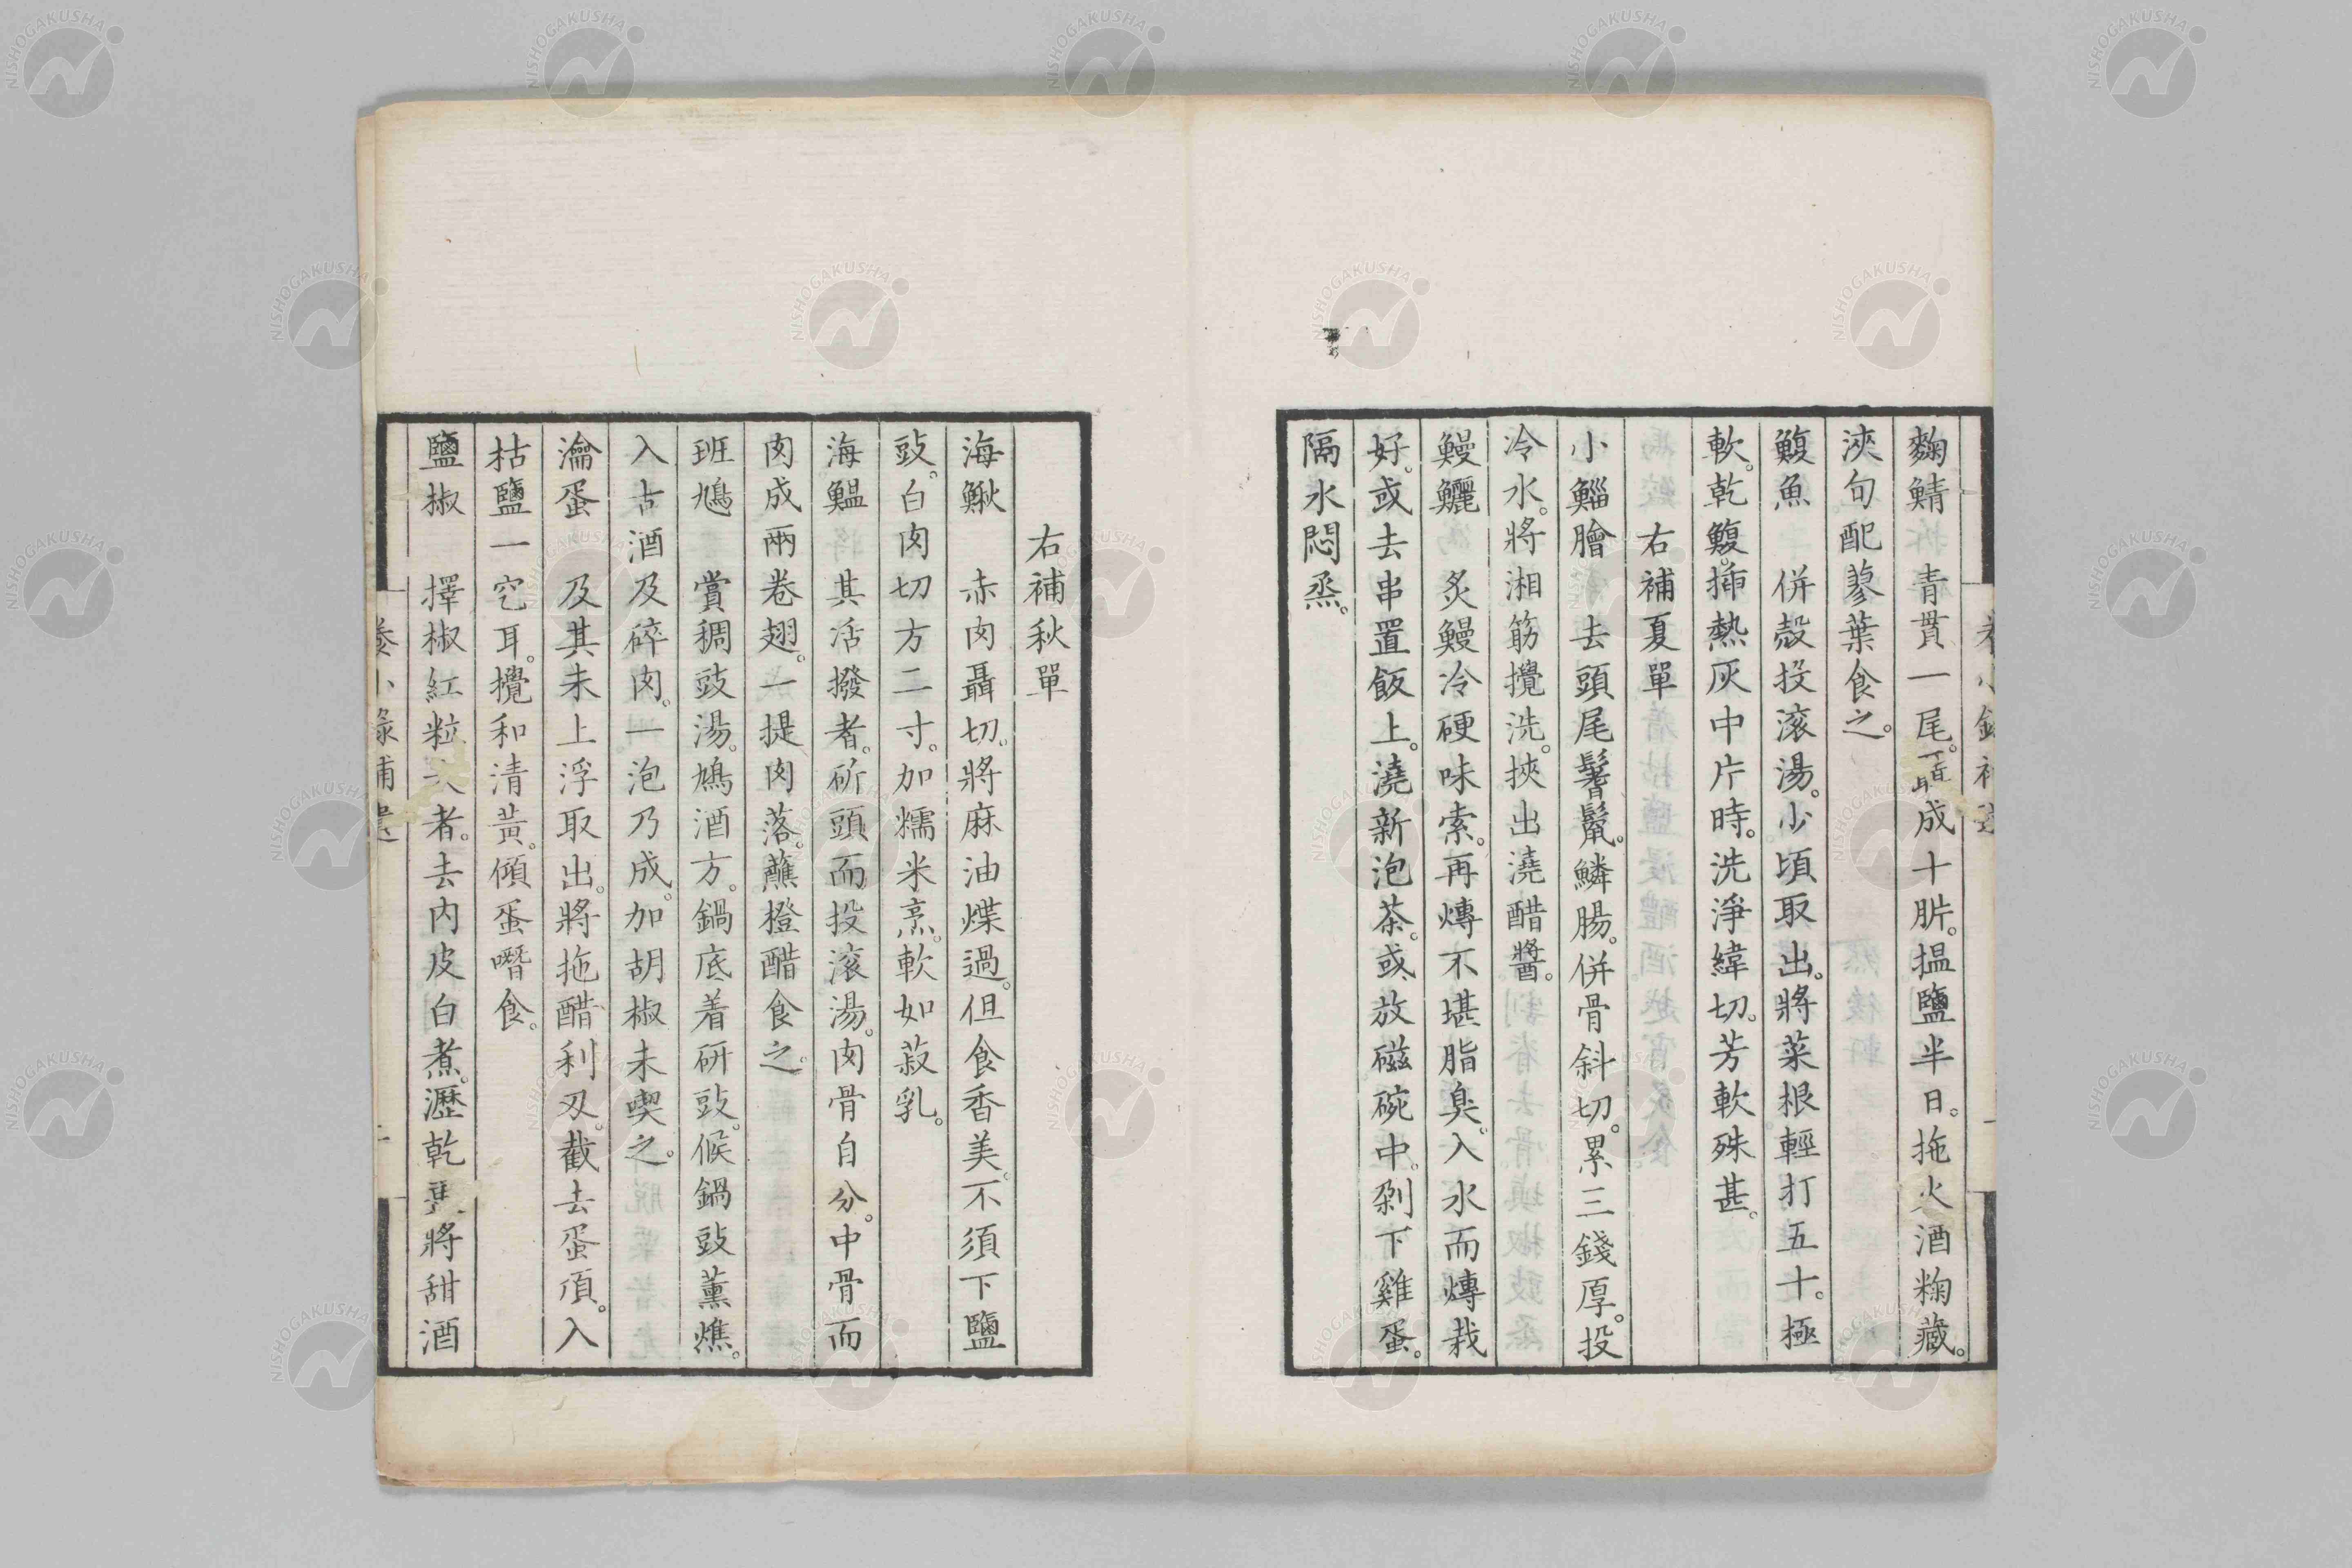 麴鯖　青貫一尾。成十胏。揾鹽半日。拖火酒粷藏。
浹旬配蓼葉食之。
鰒魚　併殼投滚湯。少頃取出。將菜根輕打五十。極
軟。乾鰒揷熱灰中片時。洗淨緯切。芳軟殊甚。
右補夏單
小鯔膾　去頭尾鬐鬣。鱗腸。併骨斜切。累三錢厚。投
冷水。將湘筯攪洗。挾出澆醋醬。
鰻鱺　炙鰻冷硬味索。再煿不堪脂臭。入水而煿栽
好。或去串置飯上。澆新泡茶。或放磁碗中。剁下雞蛋。
隔水悶烝。
右補秋單
海鰍　赤肉聶切。將麻油煠過。但食香美。不須下鹽
豉。白肉切方二寸。加糯米烹。軟如菽乳。
海鰛　其活撥者。斫頭而投滚湯。肉骨自分。中骨而
肉成兩卷翅。一提肉落。蘸橙醋食之。
班鳩　賞稠豉湯。鳩酒方。鍋底着研豉。候鍋豉薰燋。
入古酒及碎肉。一泡乃成。加胡椒末喫之。
瀹蛋　及其未上浮取出。將拖醋利刃。截去蛋頂。入
枯鹽一穵耳。攪和清黃。傾蛋噆食。
鹽椒　擇椒紅粒者。去内皮白煮。瀝乾將甜酒
卷小錄補遺